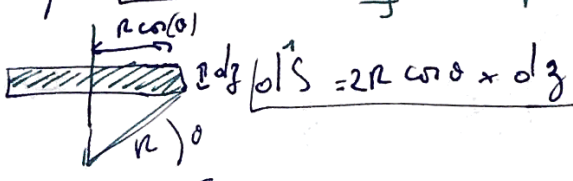 R cos(θ)
dz dS = 2R cos θ × dz
R θ